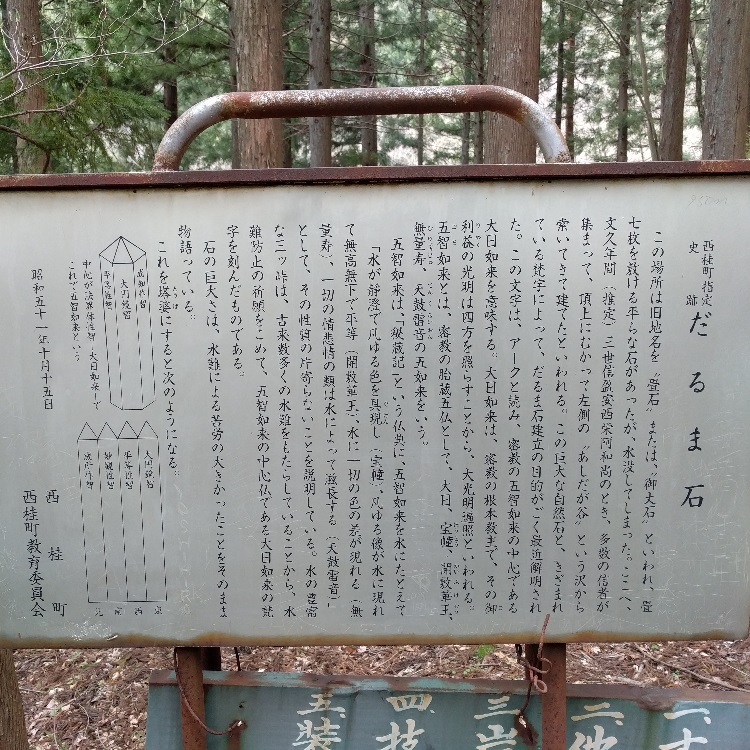 西桂町指定
史跡
だるま石
この場所は旧地名を〝畳石〟または、〝御丈石〟といわれ、畳
七枚を敷ける平らな石があったが、水没してしまった。ここへ、
文久年間(推定)三世信啟栄西栄阿和尚のとき、多数の信者が
集まって、頂上にむかって左側の〝あしだが谷〟という沢から
索いてきて建てたといわれる。この巨大な自然石と、きざまれ
ている梵字によって、だるま石建立の目的がごく最近解明され
た。この文字は、アークと読み、密教の五智如来の中心である
大日如来を意味する。大日如来は、密教の根本教主で、その御
利益の光明は四方を照らすことから、大光明遍照といわれる。
五智如来とは、密教の胎蔵五仏として、大日、宝幢、開敷華王、
無量寿、天鼓雷音の五如来をいう。
五智如来は、「秘蔵記」という仏典に、五智如来を水にたとえて
「水が静澄で凡ゆる色を具現し(宝幢)、凡ゆる像が水に現れ
て無高無下で平等(開敷華王)、水に一切の色の差が現れる(無
量寿)、一切の情悲情の類は水によって滋長する(天鼓雷音)」
として、その性質の片寄らないことを説明している。水の豊富
な三ツ峠は、古来数多くの水難をもたらしていることから、水
難防止の祈願をこめて、五智如来の中心仏である大日如来の梵
字を刻んだものである。
石の巨大さは、水難による苦労の大きかったことをそのまま
物語っている。
これを塔婆にすると次のようになる。
大円鏡智
平等性智
妙観察智
成所作智
東
西
南
北
成所作智
大円鏡智
平等性智
中心が法界体性智・大日如来して
これで五智如来という
昭和五十一年十月十五日
西桂町
西桂町教育委員会
一、
二、他
三、岩
四、技
五、装